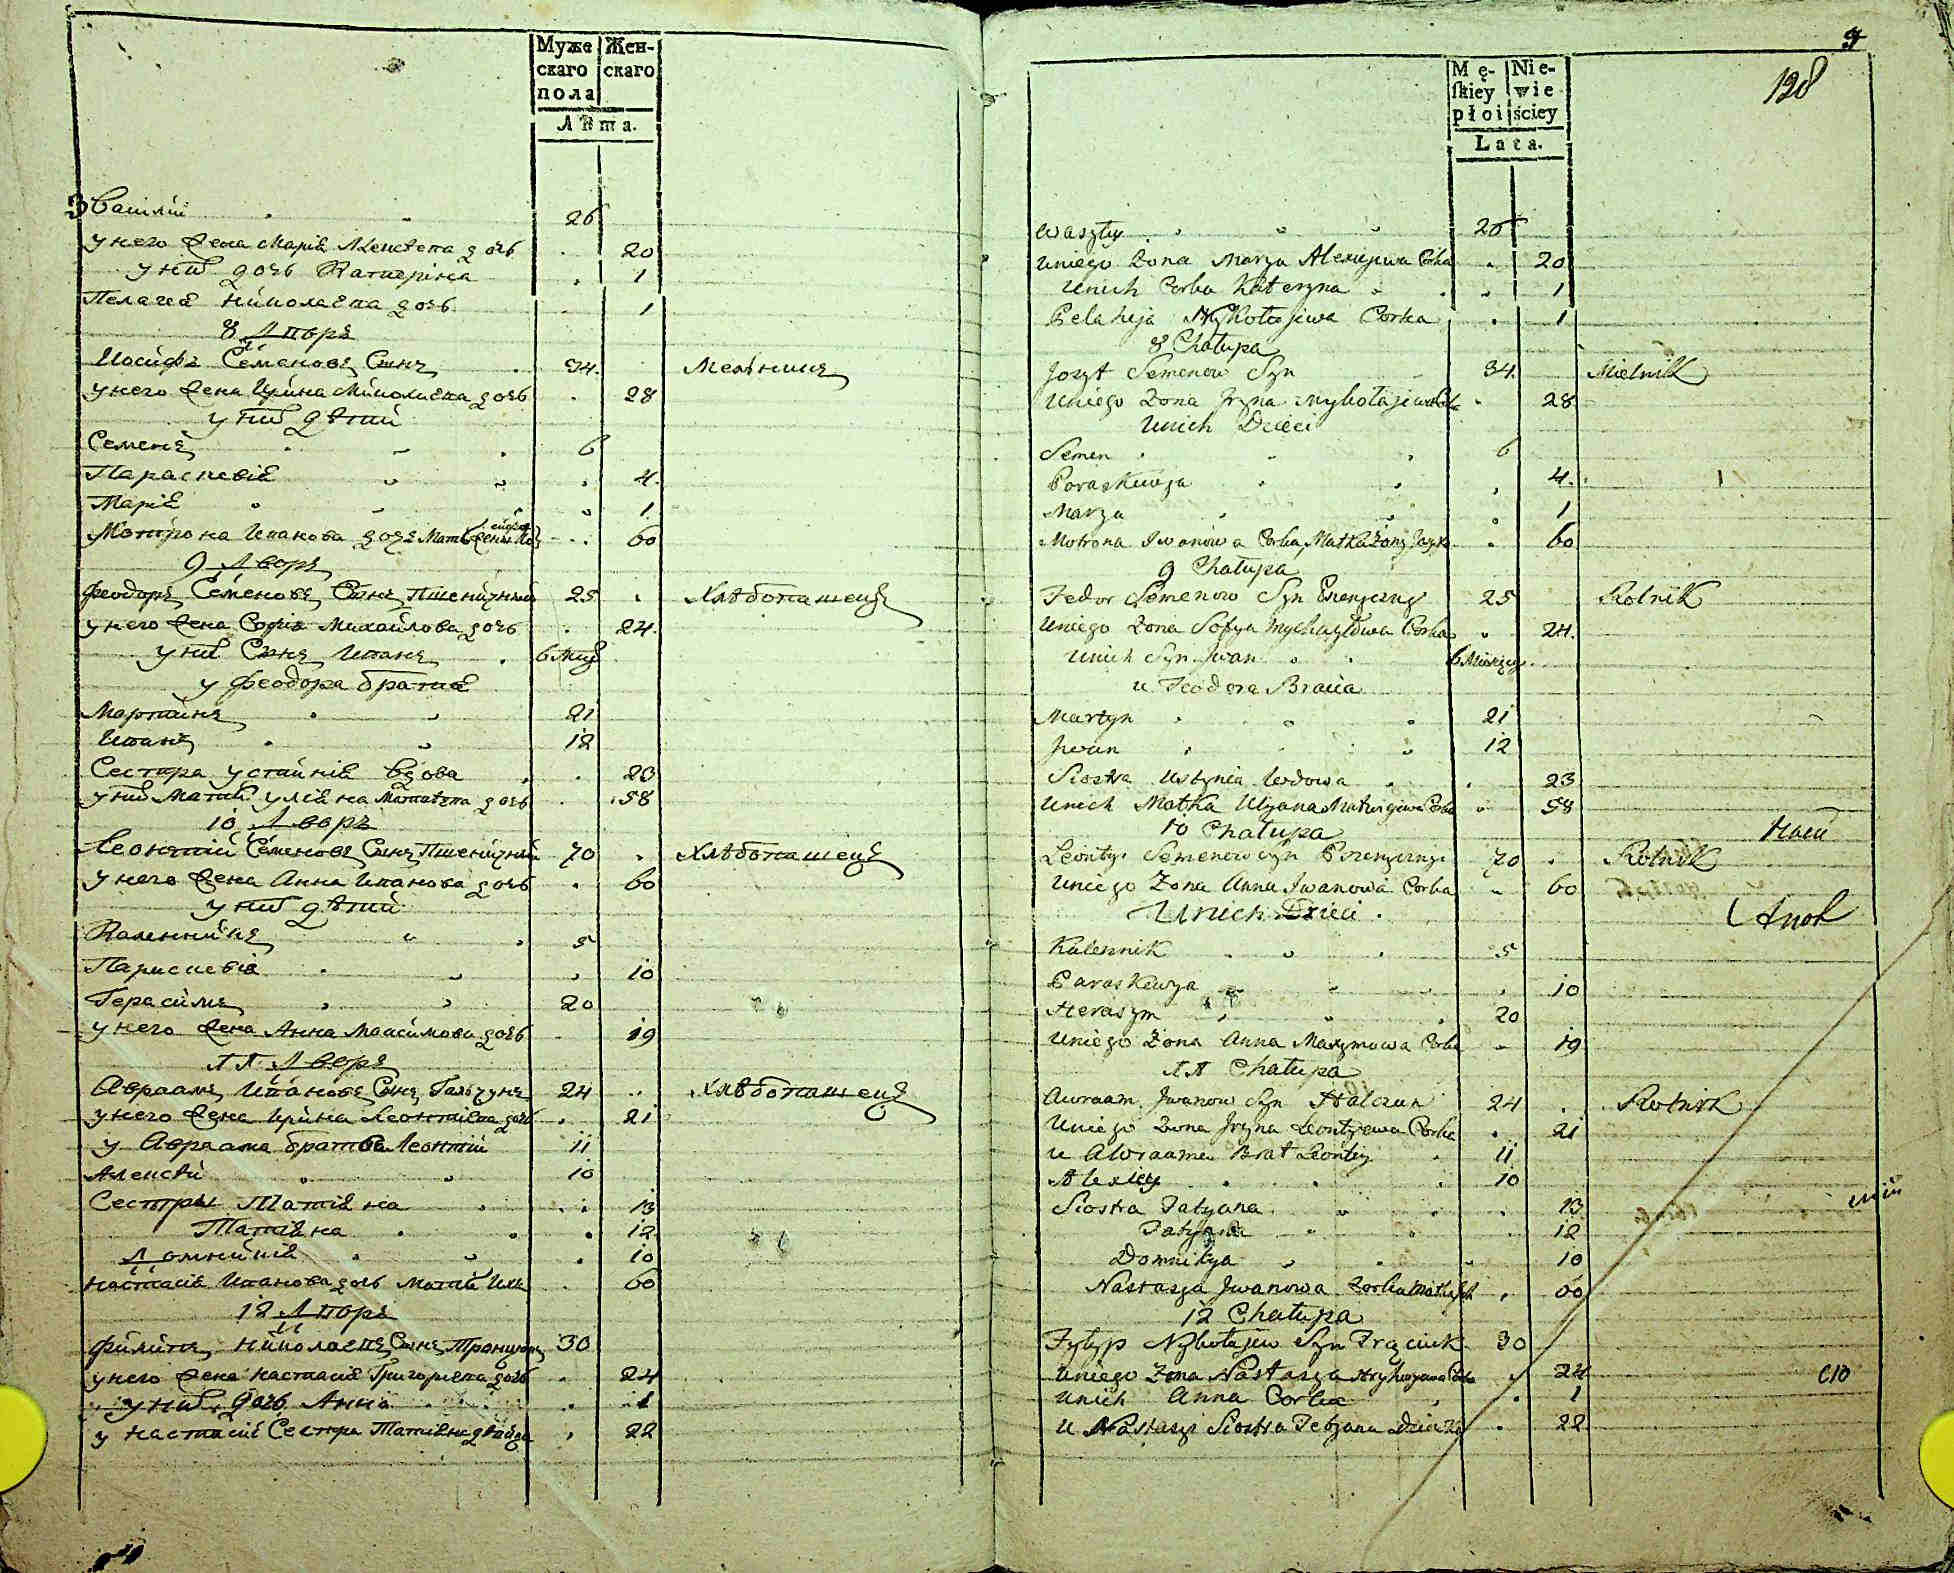 Муже скаго пола
Жен- скаго
Лѣта.
3 Василій 26
у него жена Марія Алексѣева дочь 20
у них дочь Катерина 1
Пелагея Николаева дочь 1
8 Дворъ
Иосифъ Семеновъ Сынъ 34. Мельникъ
у него жена Ирина Миколаева дочь 28
у них дѣтий
Семенъ 6
Параскевія 4.
Марія 1.
Мотрона Иванова дочь 60
9 Дворъ
Феодоръ Семеновъ Сынъ Пшеничный 25 Хлѣбопашецъ
у него жена Софія Михайлова дочь 24.
у них Сынъ Иванъ 6 Мцъ
у Феодора братия
Мартинъ 21
Иванъ 12
Сестра Устинія вдова 23
у них Мати Уліяна Матвѣева дочь 58
10 Дворъ
Леонтий Семеновъ Сынъ Пшеничный 70 Хлѣбопашецъ
у него жена Анна Иванова дочь 60
у них дѣтий
Каленникъ 5
Параскевія 10
Герасимъ 20
у него жена Анна Максимова дочь 19
11 Дворъ
Авраамъ Ивановъ Сынъ Гальчунъ 24 Хлѣбопашецъ
у него жена Ирина Леонтіева дочь 21
у Авраама братья Леонтій 11
Алексѣй 10
Сестры Татіяна 13
Татіяна 12.
Домникія 10
Настасія Иванова дочь Мати 60
12 Дворъ
Филипъ Николаевъ Сынъ 30
у него жена Настасія Григориева дочь 24
у них дочь Анна 1
у Настасіи Сестра Татіяна дѣвица 22
9
128
Mę- skiey płci
Nie- wie ściey
Lata.
Waszyly 26
Uniego Żona Marya Alexiejewa Corka 20
Unich Corka Kateryna 1
Pelaheja Mykołajewa Corka 1
8 Chałupa
Jozyf Semenow Syn 34. Mielnik
Uniego Żona Iryna Mykołajewa 28
Unich Dzieci
Semen 6
Paraskiewja 4.
Marya 1
Motrona Iwanowa Corka Matka Żony 60
9 Chałupa
Fedor Semenow Syn Pszenyczny 25 Rolnik
Uniego Żona Sofya Mychayłowa Corka 24.
Unich Syn Iwan 6 Miesięcy
u Feodora Bracia
Martyn 21
Iwan 12
Siostra Ustynia Wdowa 23
Unich Matka Ulyana Matwiejewa Corka 58
10 Chałupa
Leonty Semenow Syn Pszenyczny 70 Rolnik
Uniego Żona Anna Iwanowa Corka 60
Unich Dzieci
Kalennik 5
Paraskewya 10
Herasym 20
Uniego Żona Anna Maxymowa Corka 19
11 Chałupa
Awraam Iwanow Syn Halczun 24 Rolnik
Uniego Żona Iryna Leontyewa Corka 21
u Awraama Brat Leonty 11
Alexiey 10
Siostra Tatyana 13
Tatyana 12
Domnikya 10
Nastasya Iwanowa Corka Matka 60
12 Chałupa
Fylyp Nykołajew Syn 30
Uniego Żona Nastasya Hryhoryewa Corka 24
Unich Anna Corka 1
u Nastasyi Siostra Tetyana Dziewka 22